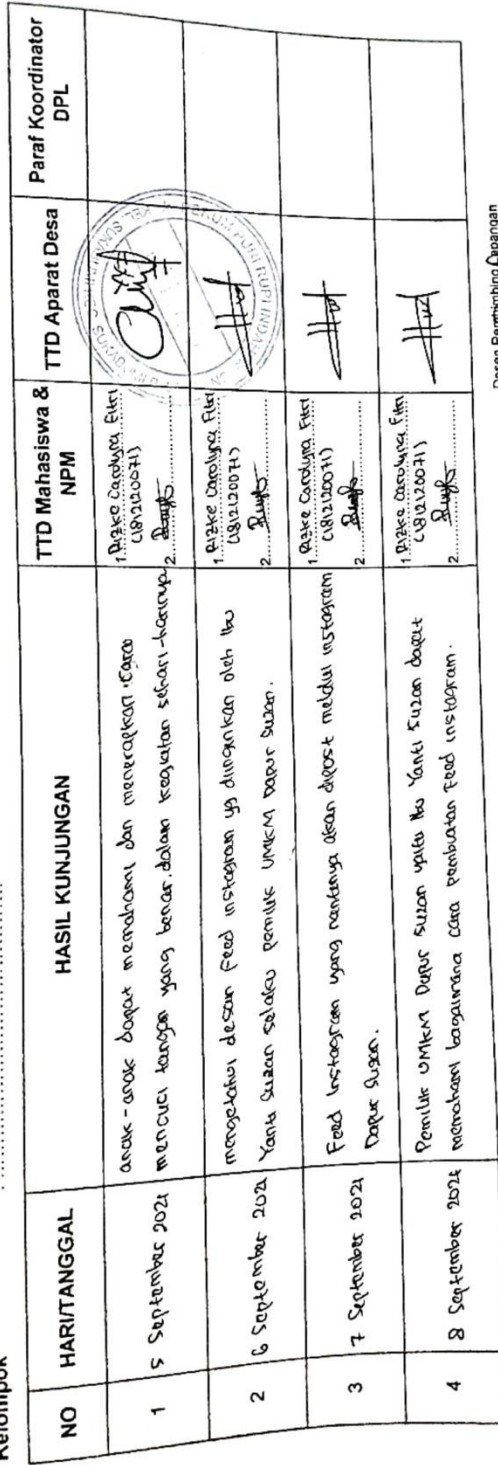 Kelompok
NO
HARI/TANGGAL
HASIL KUNJUNGAN
TTD Mahasiswa &
NPM
TTD Aparat Desa
Paraf Koordinator
DPL
1
5 September 2021
anak-anak dapat memahami dan menerapkan cara
mencuci tangan yang benar dalam kegiatan sehari-harinya
1 Rizke Carolyna Fitri
(1812120071)
2
2
6 September 2021
mengetahui desain Feed instagram yg diinginkan oleh Ibu
Yanti Suzan selaku pemilik UMKM Dapur Suzan.
1 Rizke Carolyna Fitri
(1812120071)
2
3
7 September 2021
Feed Instagram yang nantinya akan dipost melalui instagram
Dapur Suzan.
1 Rizke Carolyna Fitri
(1812120071)
2
4
8 September 2021
Pemilik UMKM Dapur Suzan yaitu Ibu Yanti Suzan dapat
memahami bagaimana cara pembuatan Feed instagram.
1 Rizke Carolyna Fitri
(1812120071)
2
Dosen Pembimbing Lapangan